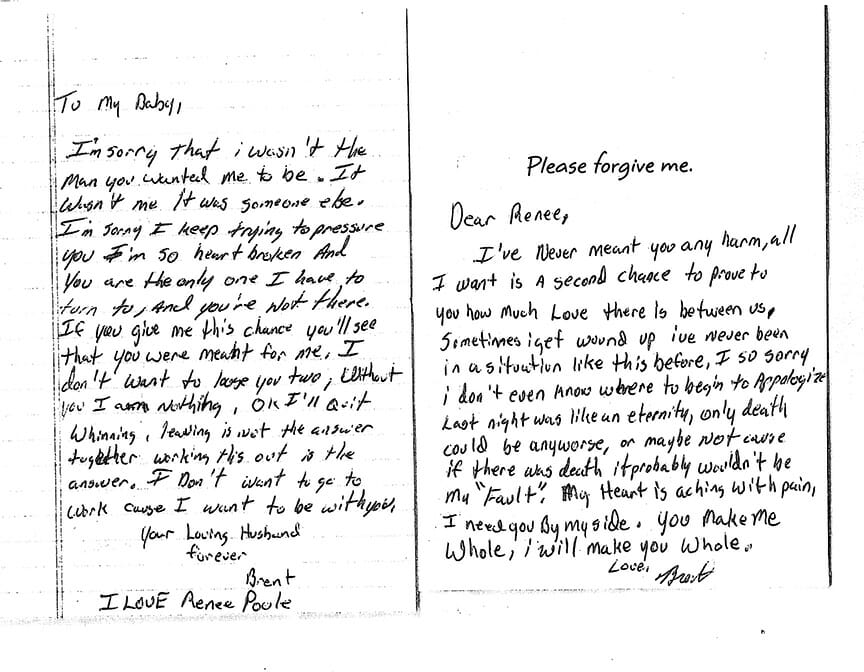 To My Baby,
I'm sorry that i wasn't the
Man you wanted me to be. It
wasn't me it was someone else.
I'm sorry I keep trying to pressure
you I'm so heart broken And
You are the only one I have to
turn to, And you're not there.
If you give me this chance you'll see
that you were meant for me, I
don't want to loose you two, without
you I am nothing, OK I'll Quit
Whinning, leaving is not the answer
together working this out is the
answer. I Don't want to go to
work cause I want to be with you,
Your Loving Husband
forever
Brent
I LOVE Renee Poole
Please forgive me.
Dear Renee,
I've Never meant you any harm, all
I want is A second chance to prove to
you how Much Love there Is between us,
Sometimes i get wound up i've never been
in a situation like this before, I so sorry
i don't even know where to begin to Appologize
Last night was like an eternity, only death
could be anyworse, or maybe Not cause
if there was death it probably wouldn't be
My "Fault". My Heart is aching with pain,
I need you By my side. You Make Me
Whole, i will make you Whole.
Love,
Brent